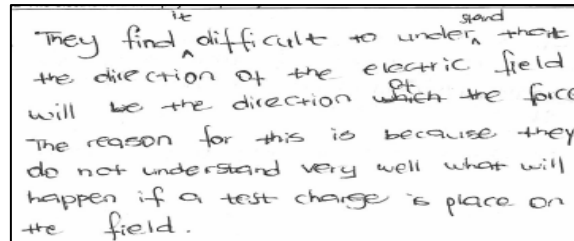 They find it difficult to understand that
the direction of the electric field
will be the direction of the force
The reason for this is because they
do not understand very well what will
happen if a test charge is place on
the field.